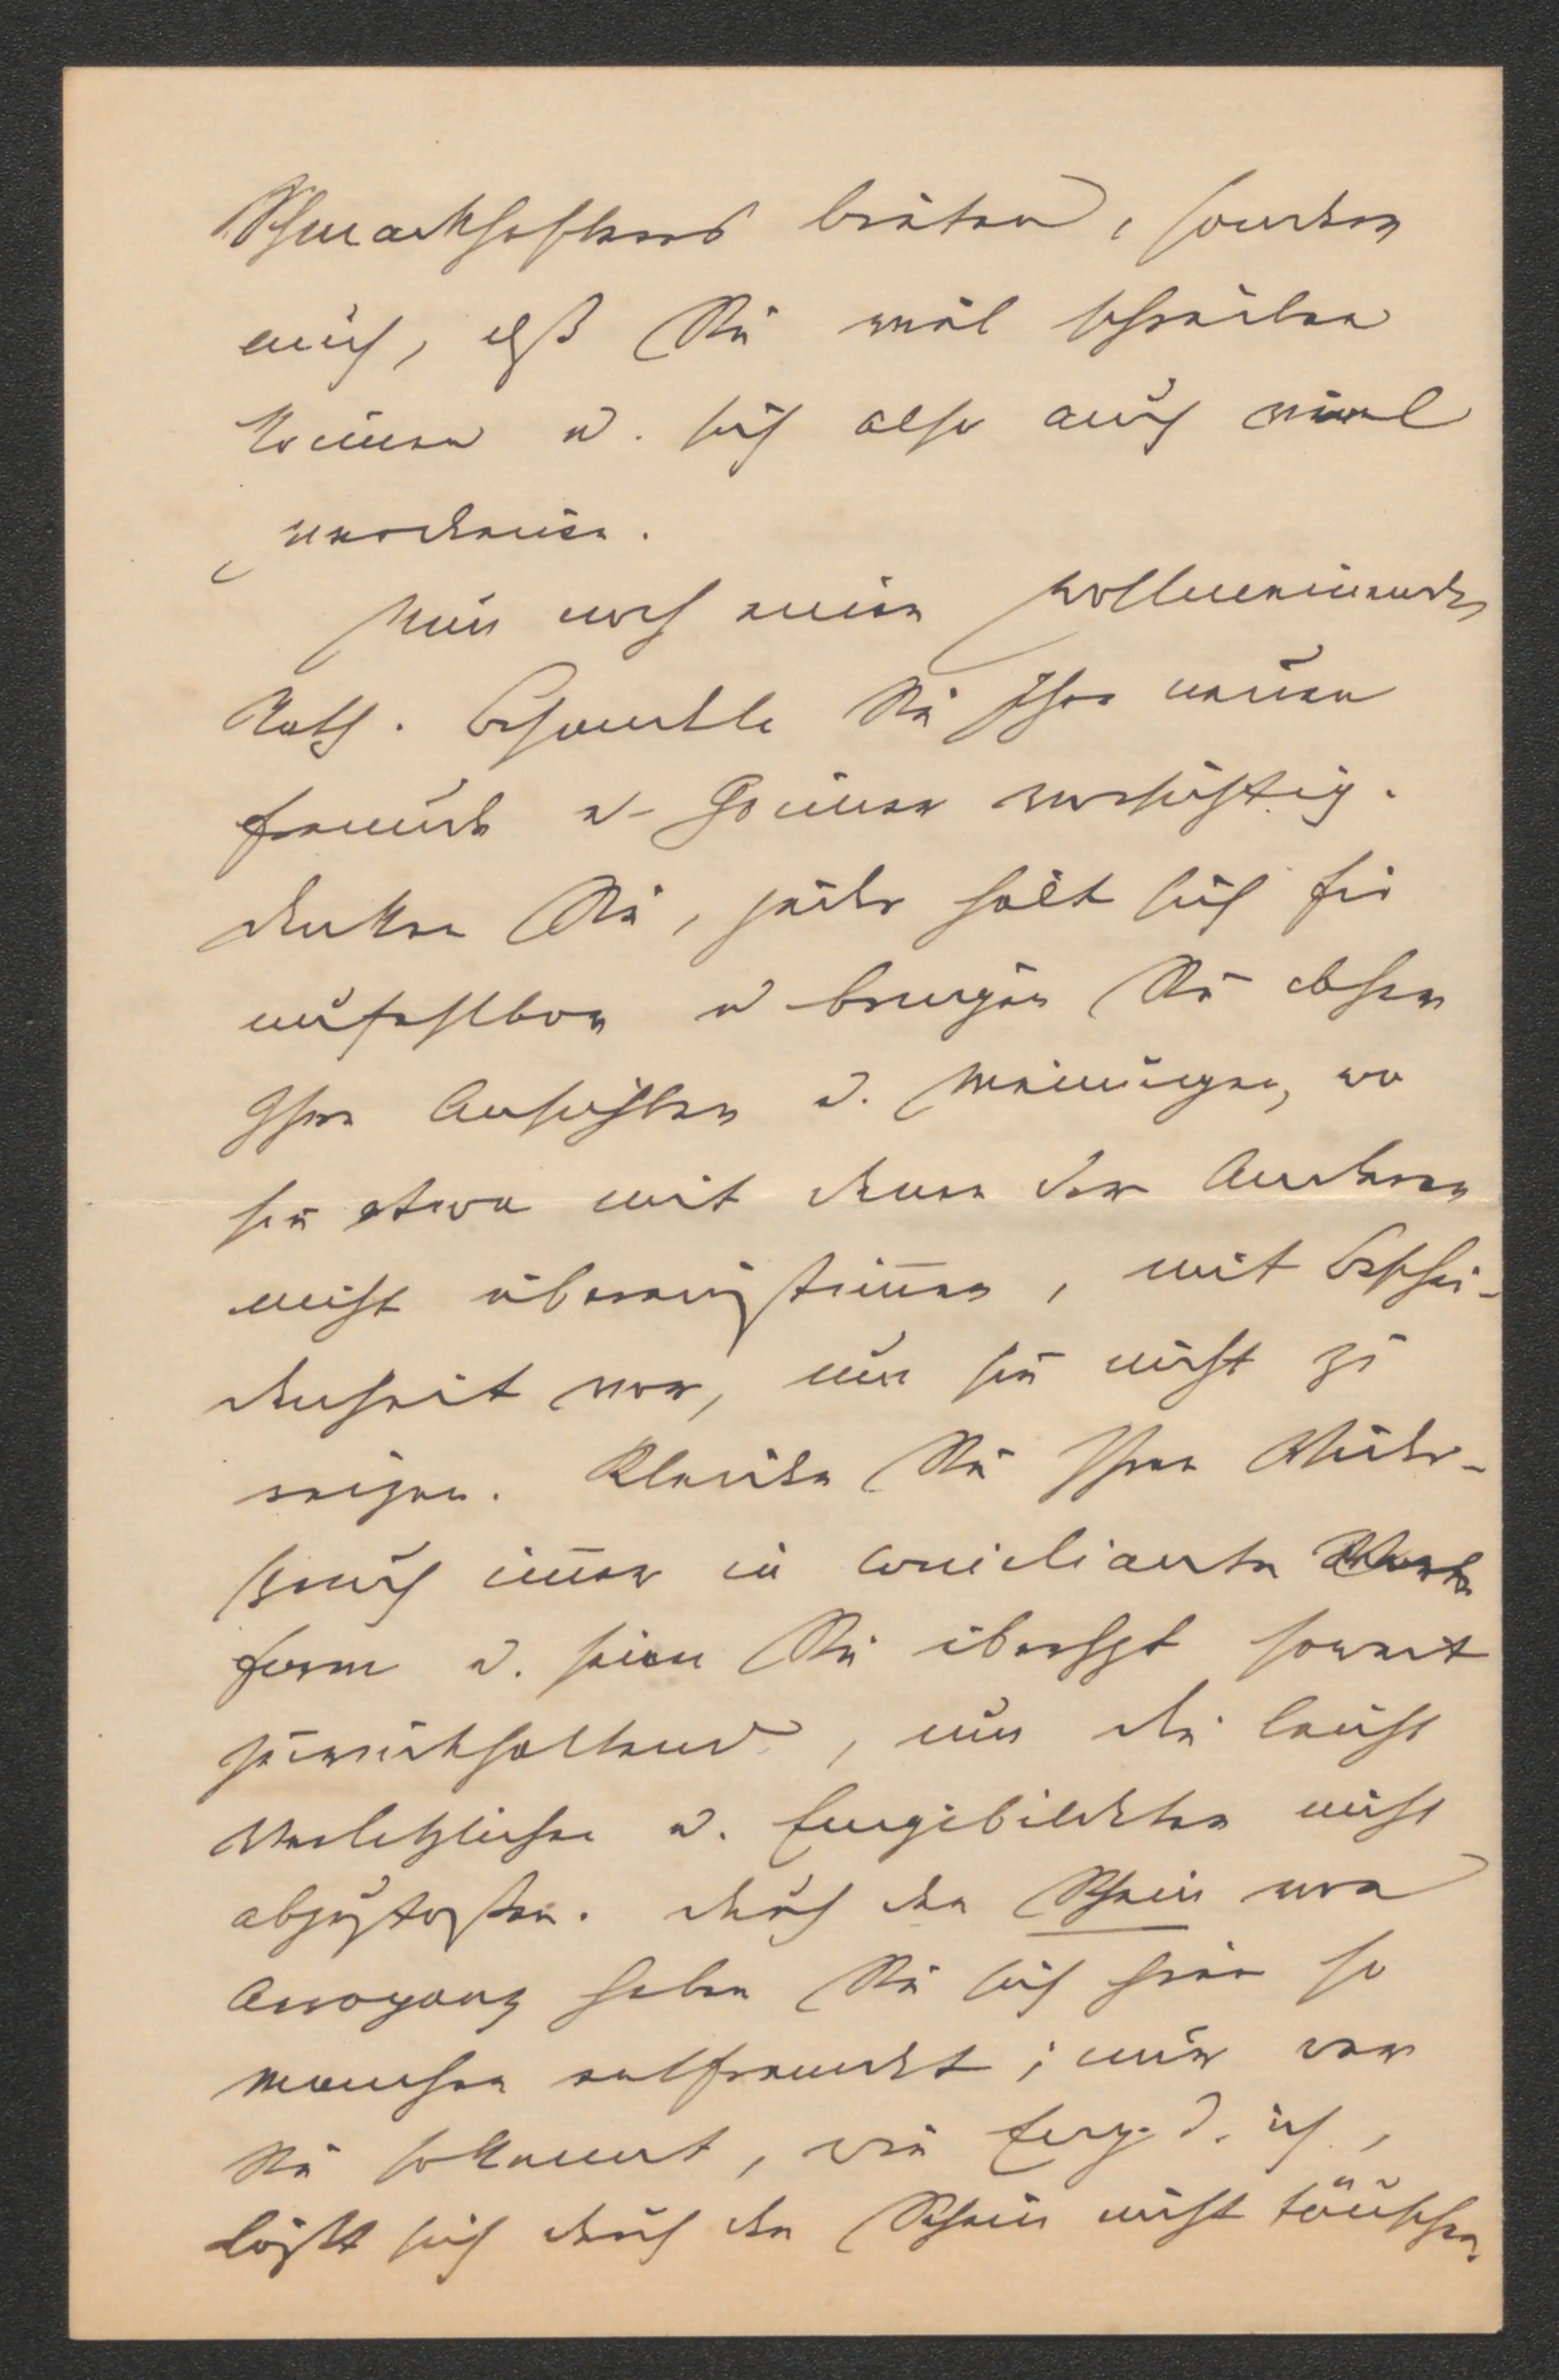 Schmackhafteres bieten, sondern
auch, daß Sie viel schreiben
können u. sich also auch viel
verdienen.
Nun noch einen wohlmeinenden
Rath. Behandle Sie Ihre neuen
Freunde u. Gönner vorsichtig.
Denken Sie, jeder hält sich für
unfehlbar u bringen Sie daher
Ihre Ansichten u. Meinungen, wo
sie etwa mit denen der Anderen
nicht übereinstimmen, mit Beschei-
denheit vor, um sie nicht zu
reizen. Kleiden Sie Ihren Wider-
spruch immer in conciliante
Form u. seien Sie überhpt soweit
zurückhaltend, um die leicht
Verletzlichen u. Eingebildeten nicht
abzustoßen. Durch den Schein von
Arroganz haben Sie sich hier so
manchen entfremdet; nur wer
Sie so kennt, wie Eng. u. ich,
läßt sich durch den Schein nicht täuschen.